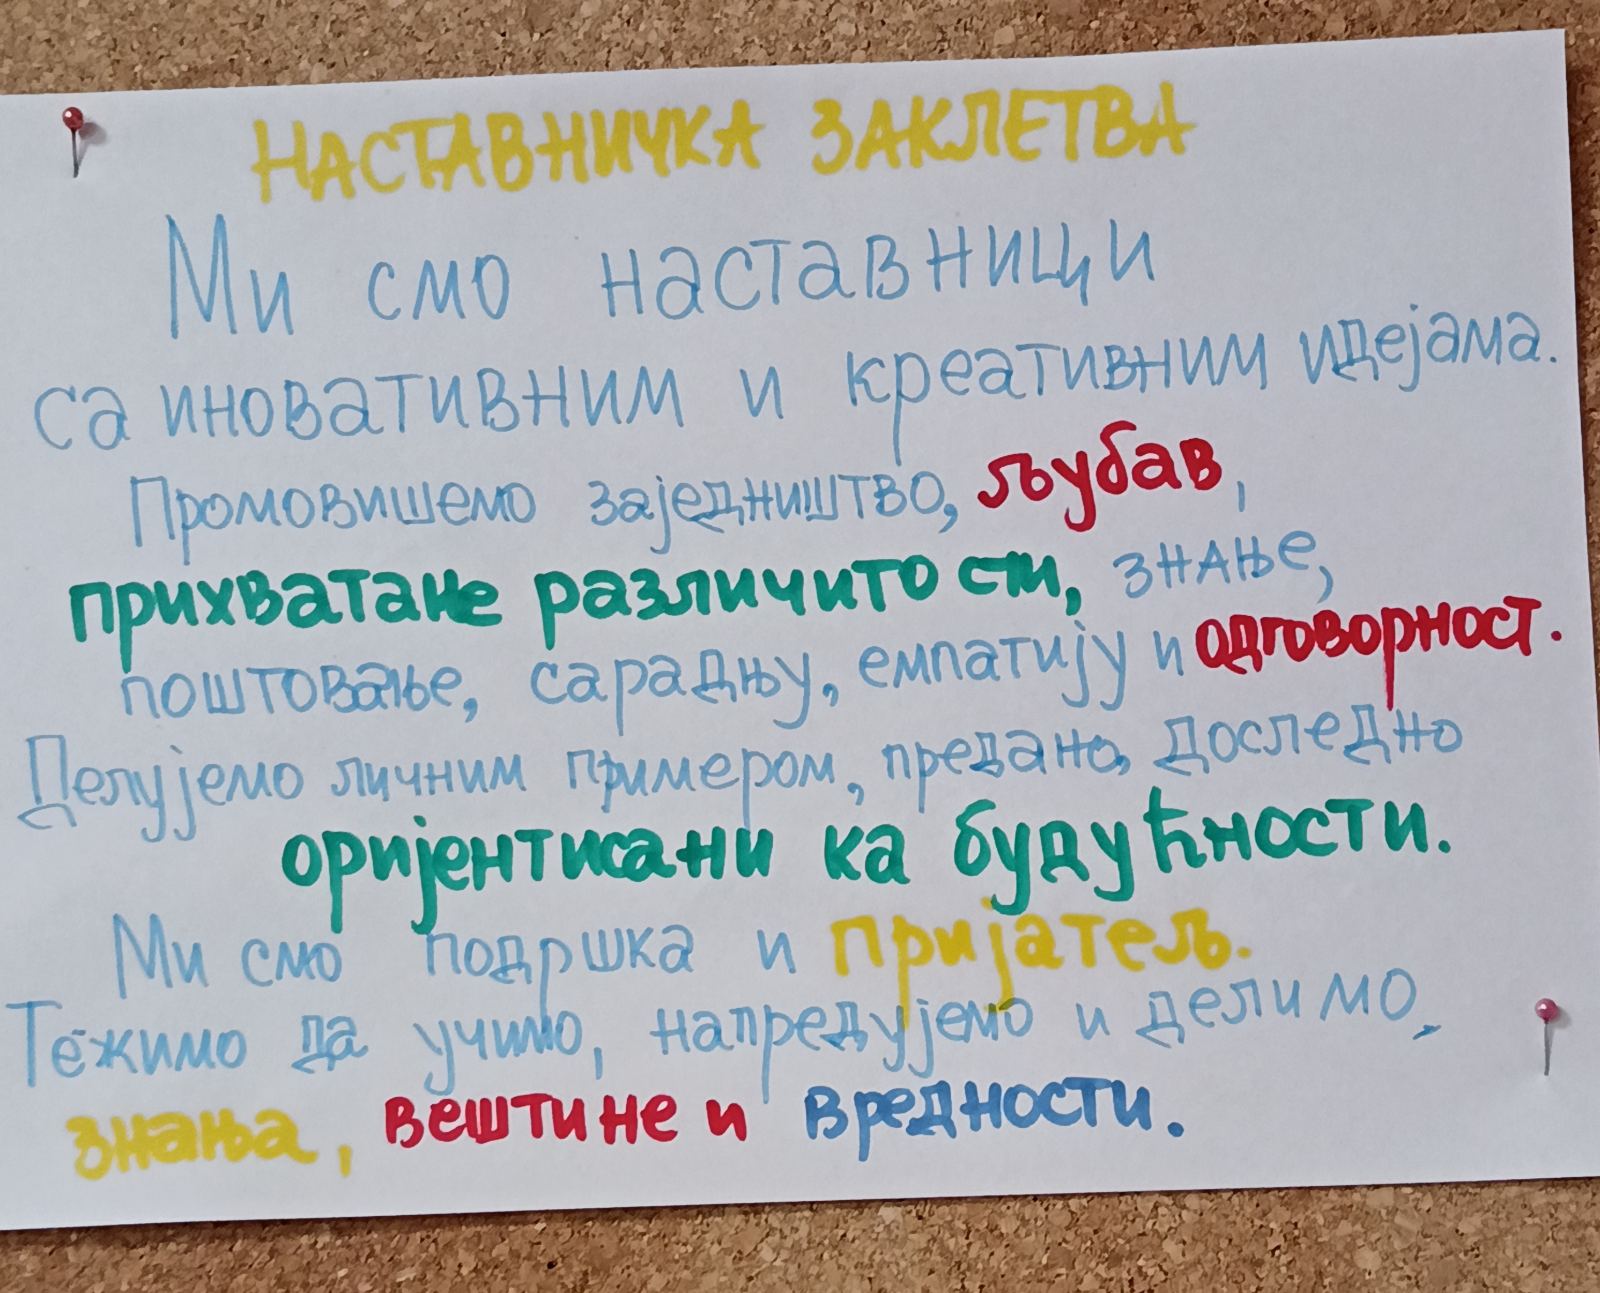 НАСТАВНИЧКА ЗАКЛЕТВА
Ми смо наставници
са иновативним и креативним идејама.
Промовишемо заједништво, љубав,
прихватање различитости, знање,
поштовање, сарадњу, емпатију и одговорност.
Делујемо личним примером, предано, доследно
оријентисани ка будућности.
Ми смо подршка и пријатељ.
Тежимо да учимо, напредујемо и делимо,
знања, вештине и вредности.